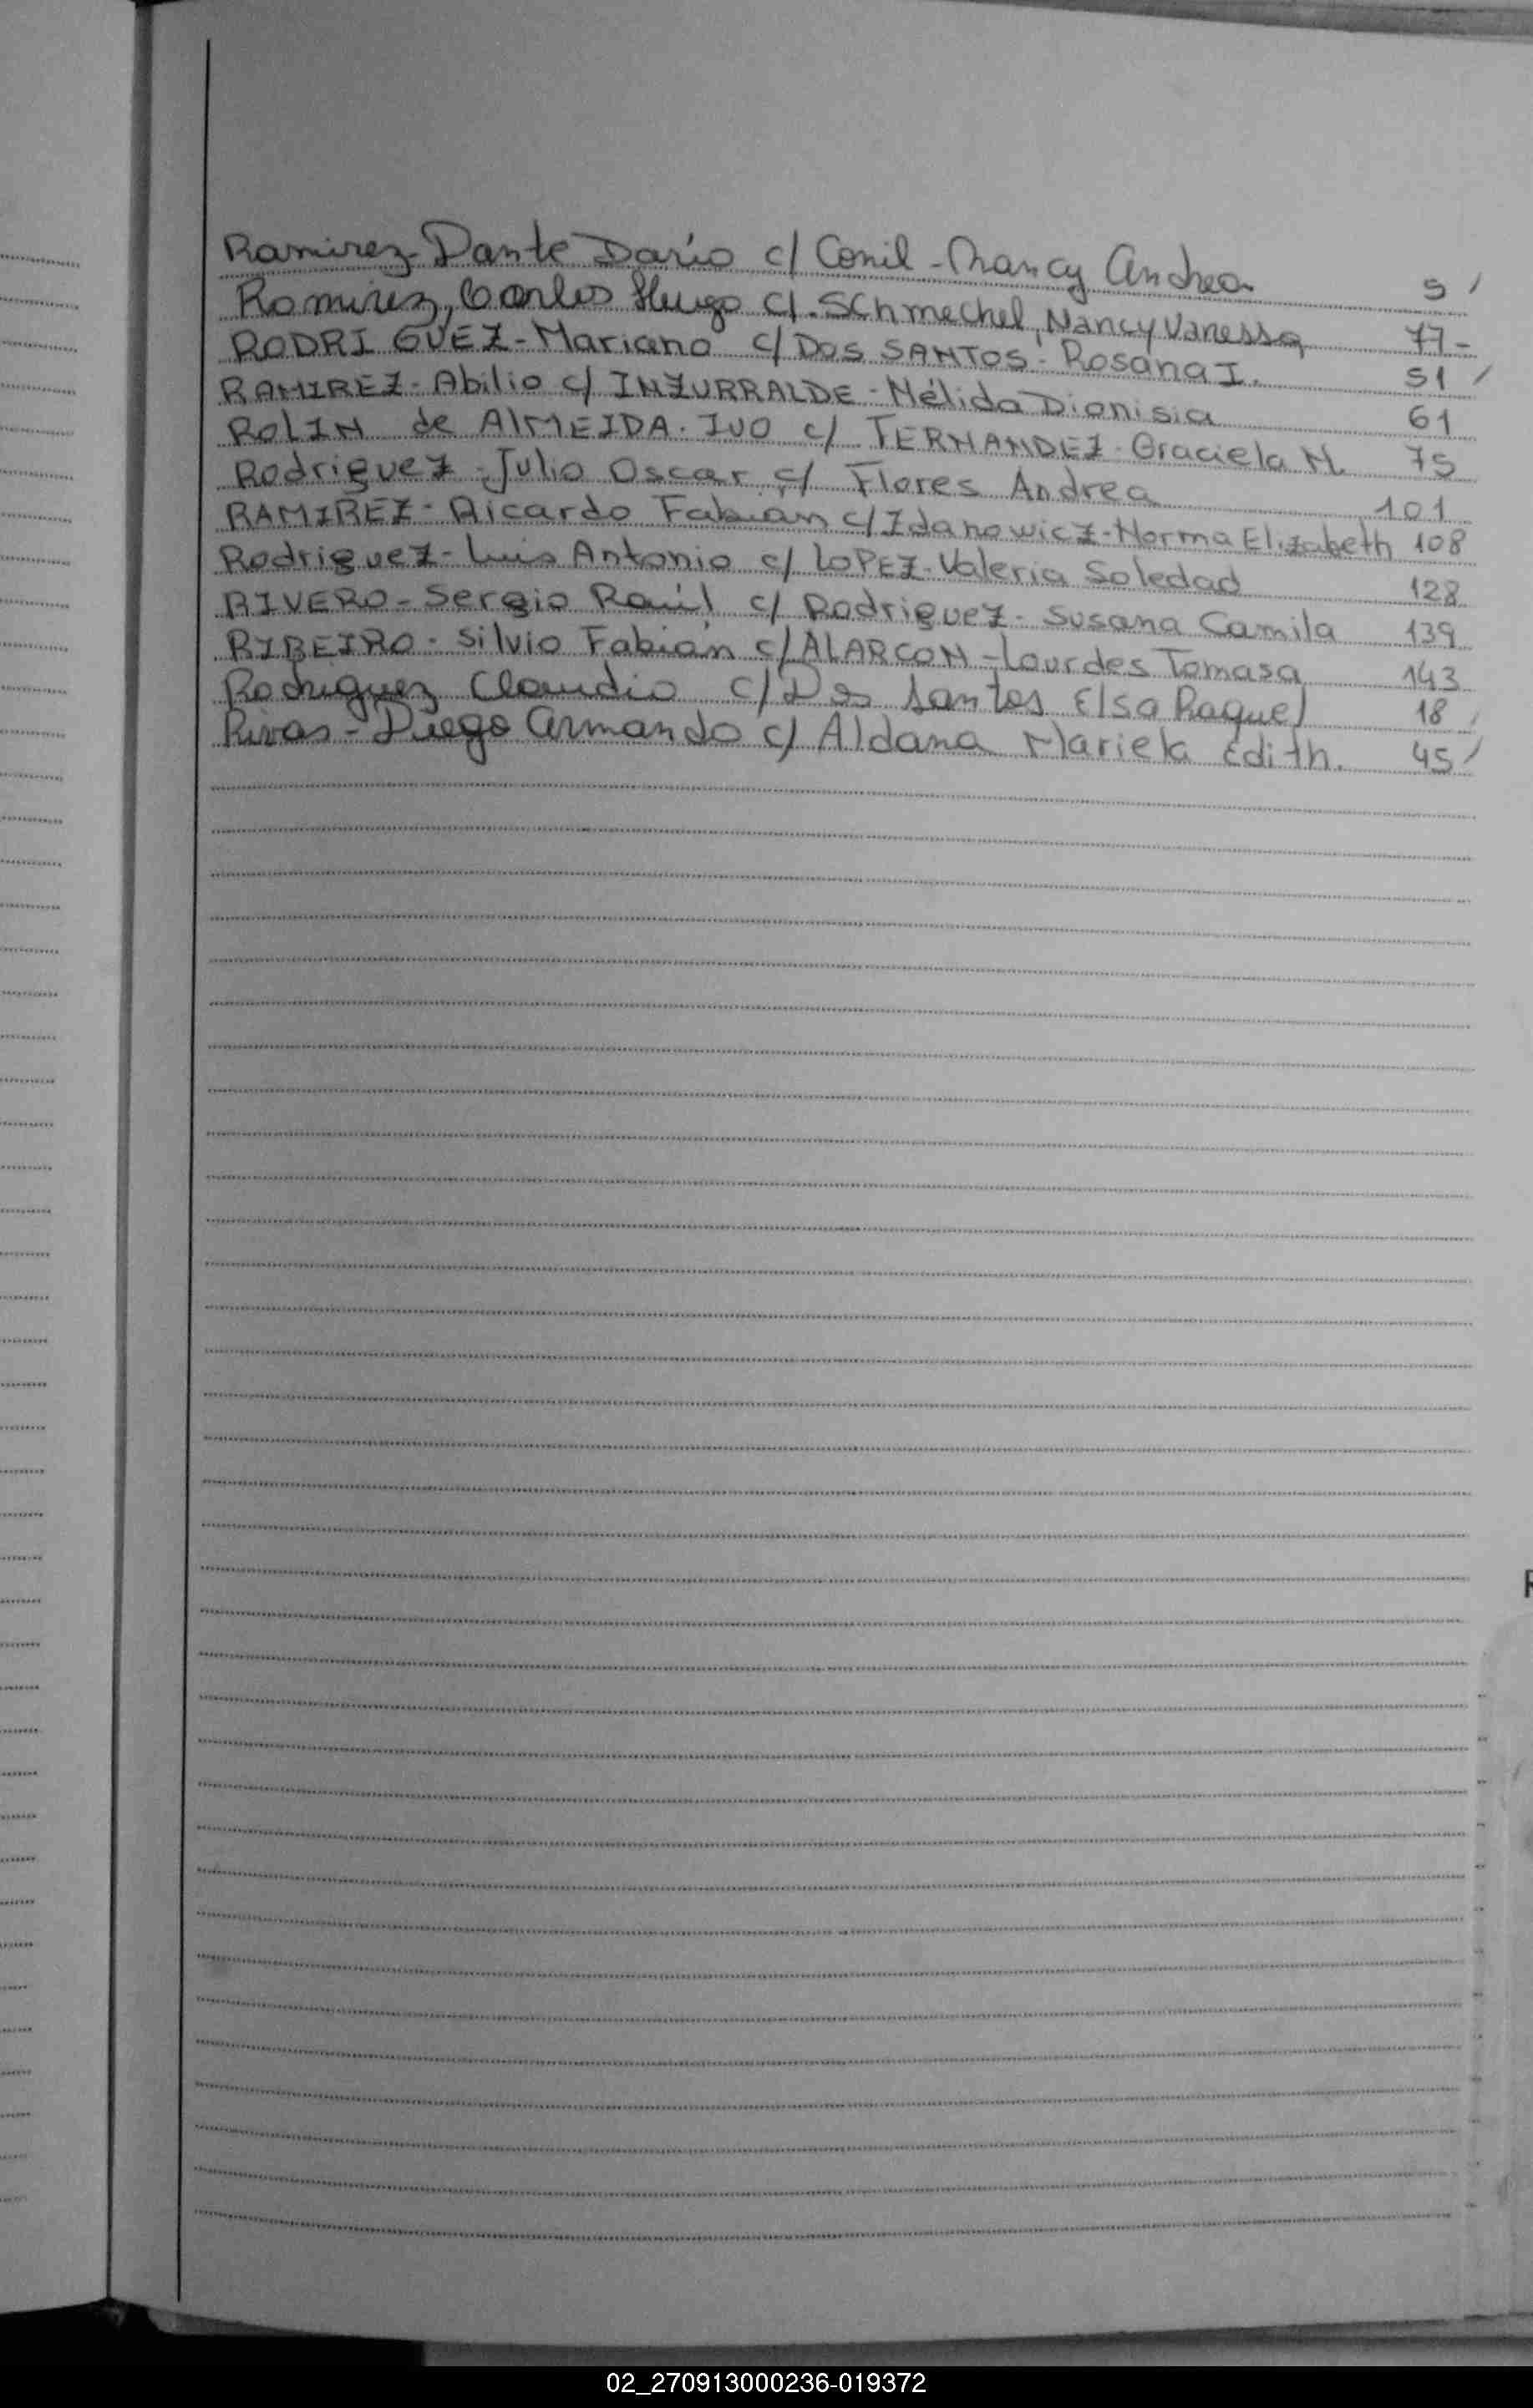 Ramirez-Dante Darío c/ Conil-Nancy Andrea 5 /
Ramirez, Carlos Hugo c/. Schmechel, Nancy Vanessa 77-
RODRIGUEZ-Mariano c/ DOS SANTOS-Rosana I. 51 /
RAMIREZ-Abilio c/ INZURRALDE-Nélida Dionisia 61
ROLIN de AlMEIDA-IVO c/ FERNANDEZ-Graciela N. 75
Rodriguez-Julio Oscar c/ Flores Andrea 101
RAMIREZ-Ricardo Fabián c/ Zdanowicz-Norma Elizabeth 108
Rodriguez-Luis Antonio c/ LOPEZ-Valeria Soledad 128
RIVERO-Sergio Raúl c/ Rodriguez-Susana Camila 139
RIBEIRO-Silvio Fabián c/ ALARCON-Lourdes Tomasa 143
Rodriguez Claudio c/ Dos Santos Elsa Raquel 18 /
Rivas-Diego Armando c/ Aldana Mariela Edith. 45 /
R
02_270913000236-019372